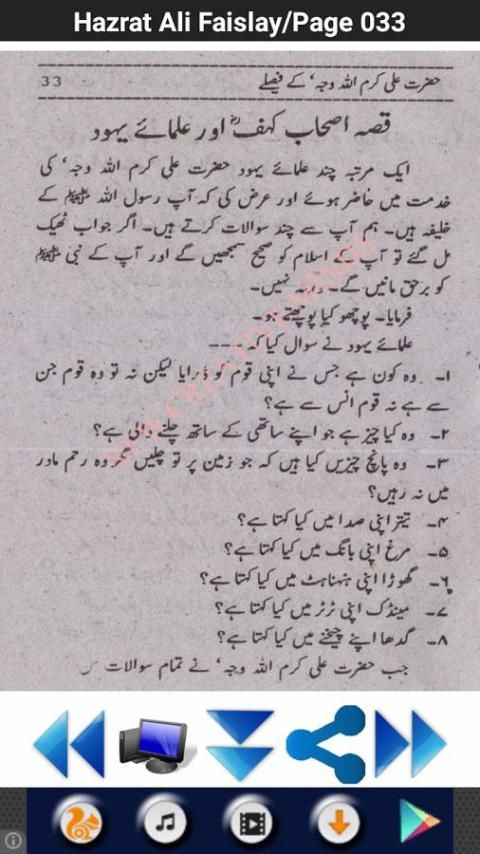 Hazrat Ali Faislay/Page 033
حضرت علی کرم اللہ وجہ، کے فیصلے
33
قصہ اصحاب کہف اور علمائے یہود
ایک مرتبہ چند علمائے یہود حضرت علی کرم اللہ وجہ، کی
خدمت میں حاضر ہوئے اور عرض کی کہ آپ رسول اللہ ﷺ کے
خلیفہ ہیں۔ ہم آپ سے چند سوالات کرتے ہیں۔ اگر جواب ٹھیک
مل گئے تو آپ کے اسلام کو صحیح سمجھیں گے اور آپ کے نبی ﷺ
کو برحق مانیں گے۔ ورنہ نہیں۔
فرمایا۔ پوچھو کیا پوچھتے ہو۔
علمائے یہود نے سوال کیا کہ ----
۱۔ وہ کون ہے جس نے اپنی قوم کو ڈرایا لیکن نہ تو وہ قوم جن
سے ہے نہ قوم انس سے ہے؟
۲۔ وہ کیا چیز ہے جو اپنے ساتھی کے ساتھ چلنے والی ہے؟
۳۔ وہ پانچ چیزیں کیا ہیں کہ جو زمین پر تو چلیں مگر وہ رحم مادر
میں نہ رہیں؟
۴۔ تیتر اپنی صدا میں کیا کہتا ہے؟
۵۔ مرغ اپنی بانگ میں کیا کہتا ہے؟
۶۔ گھوڑا اپنی ہنہناہٹ میں کیا کہتا ہے؟
۷۔ مینڈک اپنی ٹرٹر میں کیا کہتا ہے؟
۸۔ گدھا اپنے چیخنے میں کیا کہتا ہے؟
جب حضرت علی کرم اللہ وجہ، نے تمام سوالات